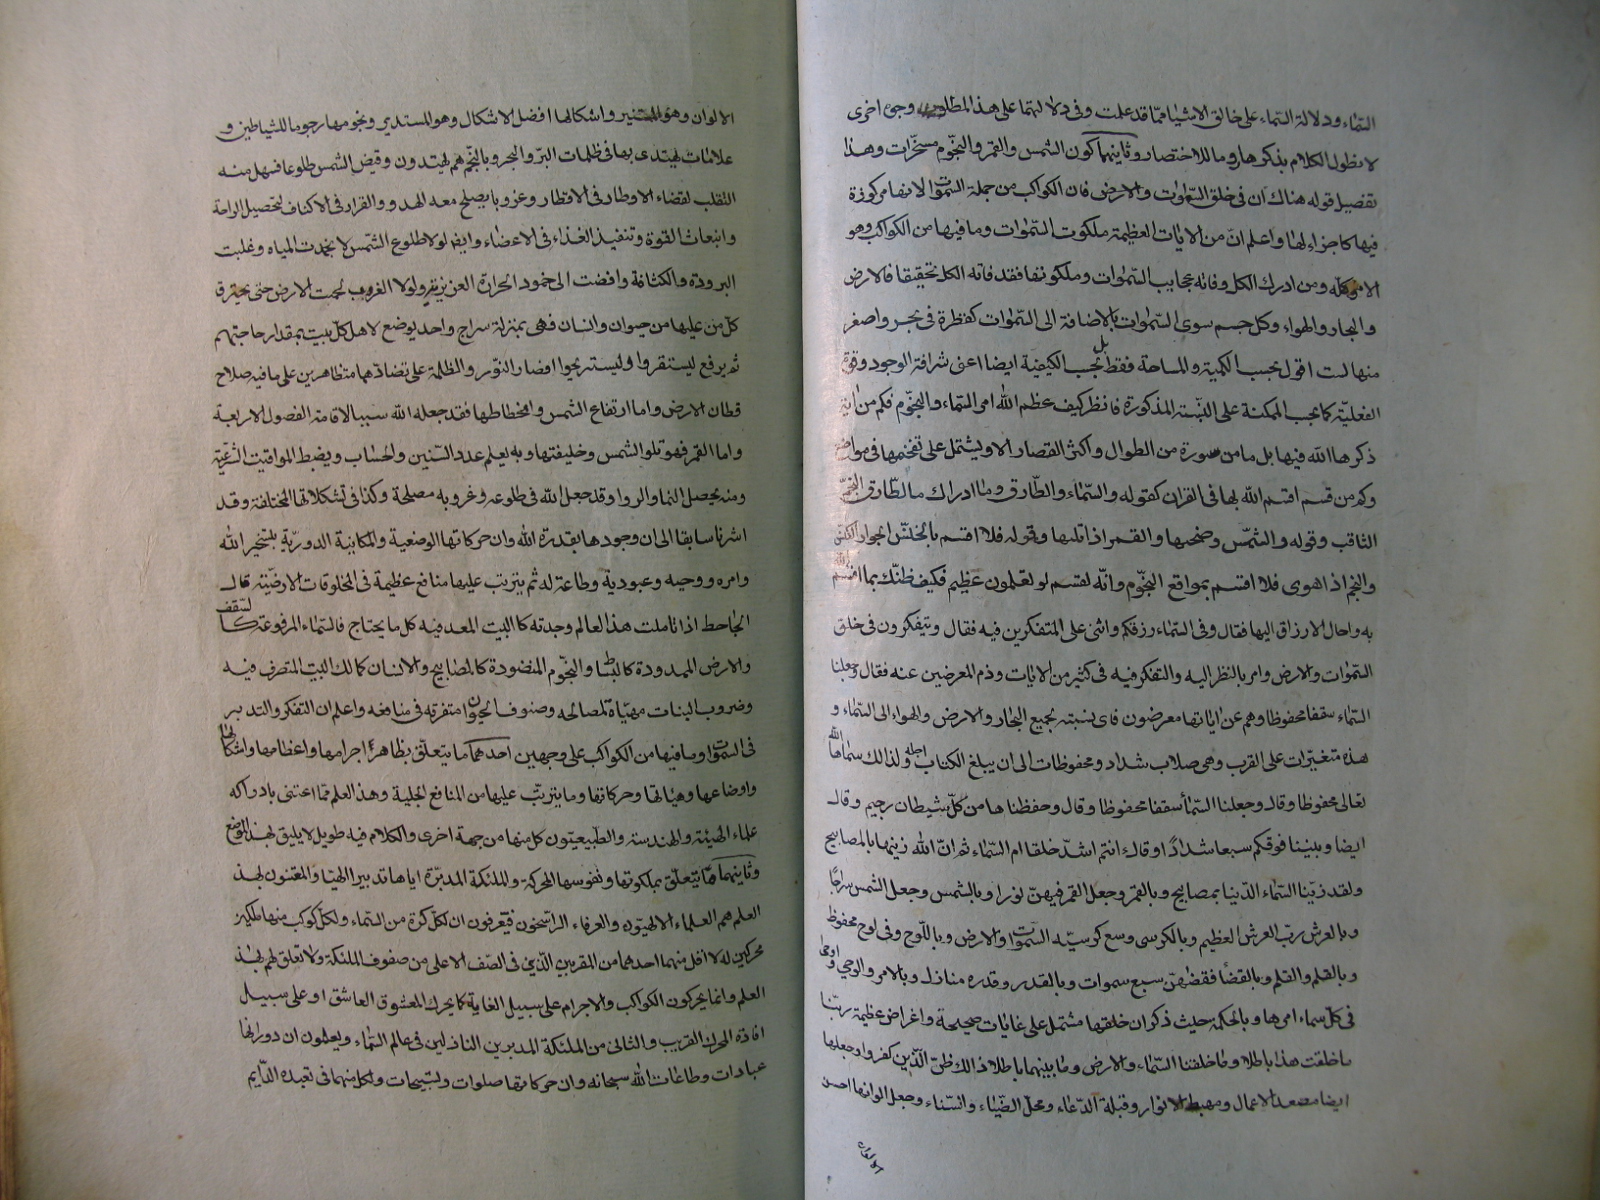 السماء ودلالة السماء على خالق الاشياء مما قد علمت وفى دلالتهما على هذا المطلوب وجوه اخرى
لا نطول الكلام بذكرها روما للاختصار وثانيهما كون الشمس والقمر والنجوم مسخرات وهذا
تفصيل قوله هناك ان فى خلق السموات والارض فان الكواكب من جملة السموات لانها مركوزة
فيها كاجزاء لها واعلم ان من الايات العظيمة ملكوت السموات وما فيها من الكواكب وهو
الامر كله ومن ادرك الكل وفاته عجايب السموات وملكوتها فقد فاته الكل تحقيقا فالارض
والبحار والهواء وكل جسم سوى السموات بالاضافة الى السموات كقطرة فى بحر واصغر
منها لست اقول بحسب الكمية والمساحة فقط بل بحسب الكيفية ايضا اعنى شرافة الوجود وقوة
الفعلية كما بحسب الكمية على النسبة المذكورة فانظر كيف عظم الله امر السماء والنجوم فكم من اية
ذكرها الله فيها بل ما من سورة من الطوال واكثر القصار الا ويشتمل على تفخيمها فى مواضع
وكم من قسم اقسم الله بها فى القران كقوله والسماء والطارق وما ادراك ما الطارق النجم
الثاقب وقوله والشمس وضحيها والقمر اذا تليها وقوله فلا اقسم بالخنس الجوار الكنس
والنجم اذا هوى فلا اقسم بمواقع النجوم وانه لقسم لو تعلمون عظيم فكيف ظنك بما اقسم الله
به واحال الارزاق اليها فقال وفى السماء رزقكم واثنى على المتفكرين فيه فقال ويتفكرون فى خلق
السموات والارض وامر بالنظر اليه والتفكر فيه فى كثير من الايات وذم المعرضين عنه فقال وجعلنا
السماء سقفا محفوظا وهم عن اياتها معرضون فاى نسبته لجميع البحار والارض والهواء الى السماء و
هذه متغيرات على القرب وهى صلاب شداد ومحفوظات الى ان يبلغ الكتاب اجله ولذالك سماها الله
تعالى محفوظا وقال وجعلنا السماء سقفا محفوظا وقال وحفظناها من كل شيطان رجيم وقال
ايضا وبنينا فوقكم سبعا شدادا وقال ءانتم اشد خلقا ام السماء ثم ان الله زينها بالمصابيح
ولقد زينا السماء الدنيا بمصابيح وبالقمر وجعل القمر فيهن نورا وبالشمس وجعل الشمس سراجا
وبالعرش رب العرش العظيم وبالكرسى وسع كرسيه السموات والارض وباللوح وفى لوح محفوظ
وبالقلم والقلم وبالقضا فقضهن سبع سموات وبالقدر وقدره منازل وبالامر والوحى واوحى
فى كل سماء امرها وبالحكمة حيث ذكر ان خلقها مشتمل على غايات صحيحة واغراض عظيمة ربنا
ما خلقت هذا باطلا وما خلقنا السماء والارض وما بينهما باطلا ذالك ظن الذين كفروا وجعلها
ايضا مصعد الاعمال ومهبط الانوار وقبلة الدعاء ومحل الضياء والسناء وجعل الوانها احسن
الالوان
الالوان وهو المستنير واشكالها افضل الاشكال وهو المستدير ونجومها رجوما للشياطين و
علامات يهتدى بها فى ظلمات البر والبحر وبالنجم هم يهتدون وقيض الشمس طلوعا فسهل منه
التقلب لقضاء الاوطار فى الاقطار وغروبا يصلح معه الهدو والقرار فى الاكناف لتحصيل الراحة
وانبعاث القوة وتنفيذ الغذاء فى الاعضاء وايضا لولا طلوع الشمس لانجمدت المياه وغلبت
البرودة والكثافة وافضت الى خمود الحرارة العزيزية ولولا الغروب لحميت الارض حتى يحترق
كل من عليها من حيوان وانسان فهى بمنزلة سراج واحد يوضع لاهل كل بيت بمقدار حاجتهم
ثم يرفع ليستقروا وليستريحوا افصار النور والظلمة على تضادهما متظاهرين على ما فيه صلاح
قطان الارض واما ارتفاع الشمس وانحطاطها فقد جعله الله سببا لاقامة الفصول الاربعة
واما القمر فهو تلو الشمس وخليفتها وبه يعلم عدد السنين والحساب ويضبط المواقيت الشرعية
ومنه يحصل النما والروا وقد جعل الله فى طلوعه وغروبه مصلحة وكذا فى تشكلاتها المختلفة وقد
اشرنا سابقا الى ان وجودها بقدرة الله وان حركاتها الوضعية والمكانية الدورية بتسخير الله
وامره ووحيه وعبودية وطاعة له ثم يترتب عليها منافع عظيمة فى المخلوقات الارضية قال
الجاحظ اذا تاملت هذا العالم وجدته كالبيت المعد فيه كل ما يحتاج فالسماء المرفوعة كالسقف
والارض الممدودة كالبساط والنجوم المنضودة كالمصابيح والانسان كمالك البيت المتصرف فيه
وضروب النبات مهياة لمصالحه وصنوف الحيوان متفرقه فى منافعه واعلم ان التفكر والتدبر
فى السموات وما فيها من الكواكب على وجهين احدهما ما يتعلق بظاهر اجرامها واعظامها واشكالها
واوضاعها وهيئاتها وحركاتها وما يترتب عليها من المنافع الجلية وهذا العلم مما اعتنى بادراكه
علماء الهيئة والهندسة والطبيعيون كل منها من جهة اخرى والكلام فيه طويل لا يليق بهذا الموضع
وثانيهما ما يتعلق بملكوتها ونفوسها المحركة والملئكة المدبرة اياها تدبيرا الهيا والمعتنون لهذ
العلم هم العلماء الالهيون والعرفاء الراسخون فيعرفون ان لكل كرة من السماء ولكل كوكب منها ملكين
محركين له لا اقل منهما احدهما من المقربين الذى فى الصف الاعلى من صفوف الملئكة ولا تعلق لهم بهذ
العلم وانما يحركون الكواكب والاجرام على سبيل الغاية كما يحرك المعشوق العاشق او على سبيل
افادة المحرك القريب والثانى من الملئكة المدبرين النازلين فى عالم السماء ويعلمون ان دورانها
عبادات وطاعات الله سبحانه وان حركاتها صلوات وتسبيحات ولكل منهما فى تعبده الدايم